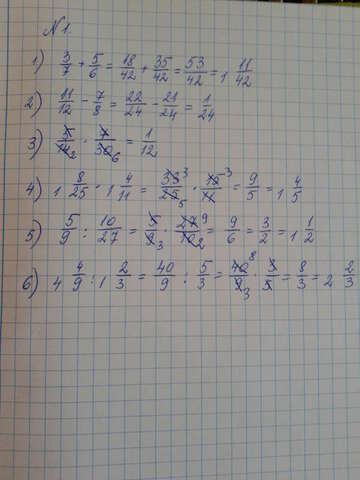 №1.
1) 3/7 + 5/6 = 18/42 + 35/42 = 53/42 = 1 11/42
2) 11/12 - 7/8 = 22/24 - 21/24 = 1/24
3) 5/14 2 · 7/30 6 = 1/12
4) 1 8/25 · 1 4/11 = 33 3/25 5 · 15 3/11 = 9/5 = 1 4/5
5) 5/9 : 10/27 = 5/9 3 · 27 9/10 2 = 9/6 = 3/2 = 1 1/2
6) 4 4/9 : 1 2/3 = 40/9 : 5/3 = 40 8/9 3 · 3/5 = 8/3 = 2 2/3